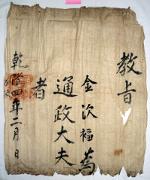 教旨
金次福爲
通政大夫
者
乾隆四年二月 日